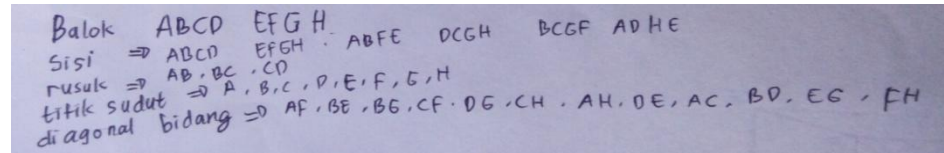 Balok ABCD EFGH
Sisi ⇒ ABCD EFGH . ABFE DCGH BCGF ADHE
rusuk ⇒ AB . BC . CD
titik sudut ⇒ A, B, C, D, E, F, G, H
diagonal bidang ⇒ AF . BE . BG . CF . DG . CH . AH . DE, AC . BD . EG . FH